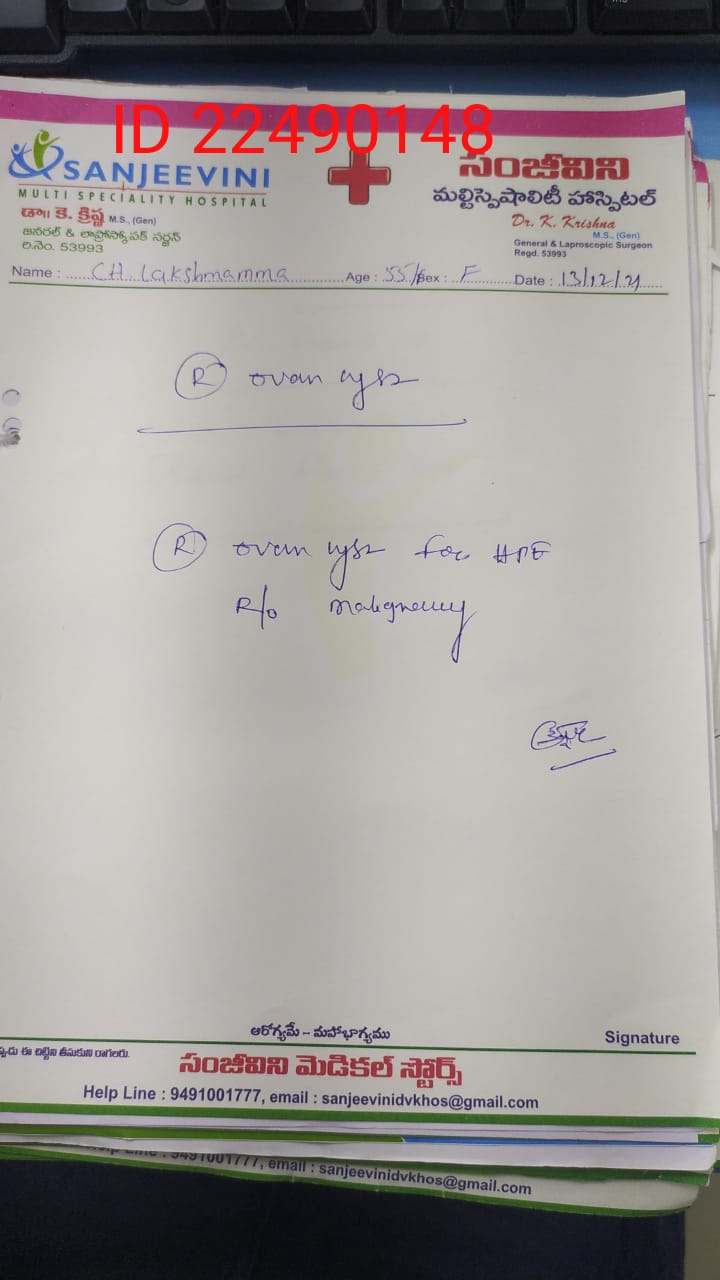 ID 22490148
SANJEEVINI
MULTI SPECIALITY HOSPITAL
డా॥ కె. క్రిష్ణ M.S., (Gen)
జనరల్ & లాప్రోస్కోపిక్ సర్జన్
రి.నెం. 53993
సంజీవిని
మల్టిస్పెషాలిటీ హాస్పిటల్
Dr. K. Krishna
M.S., (Gen)
General & Laproscopic Surgeon
Regd. 53993
Name : CH. Lakshmamma Age : 55 Sex : F Date : 13/12/21
(R) ovarn cyst
(R) ovarn cyst for HPE
R/o malignancy
ఆరోగ్యమే - మహాభాగ్యము
Signature
ఈ చిట్టిని తీసుకుని రాగలరు.
సంజీవిని మెడికల్ స్టోర్స్
Help Line : 9491001777, email : sanjeevinidvkhos@gmail.com
9491001777, email : sanjeevinidvkhos@gmail.com